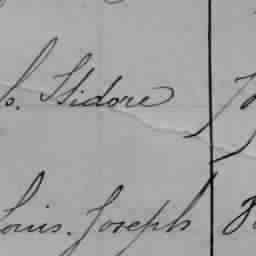 Isidore
Louis. Joseph